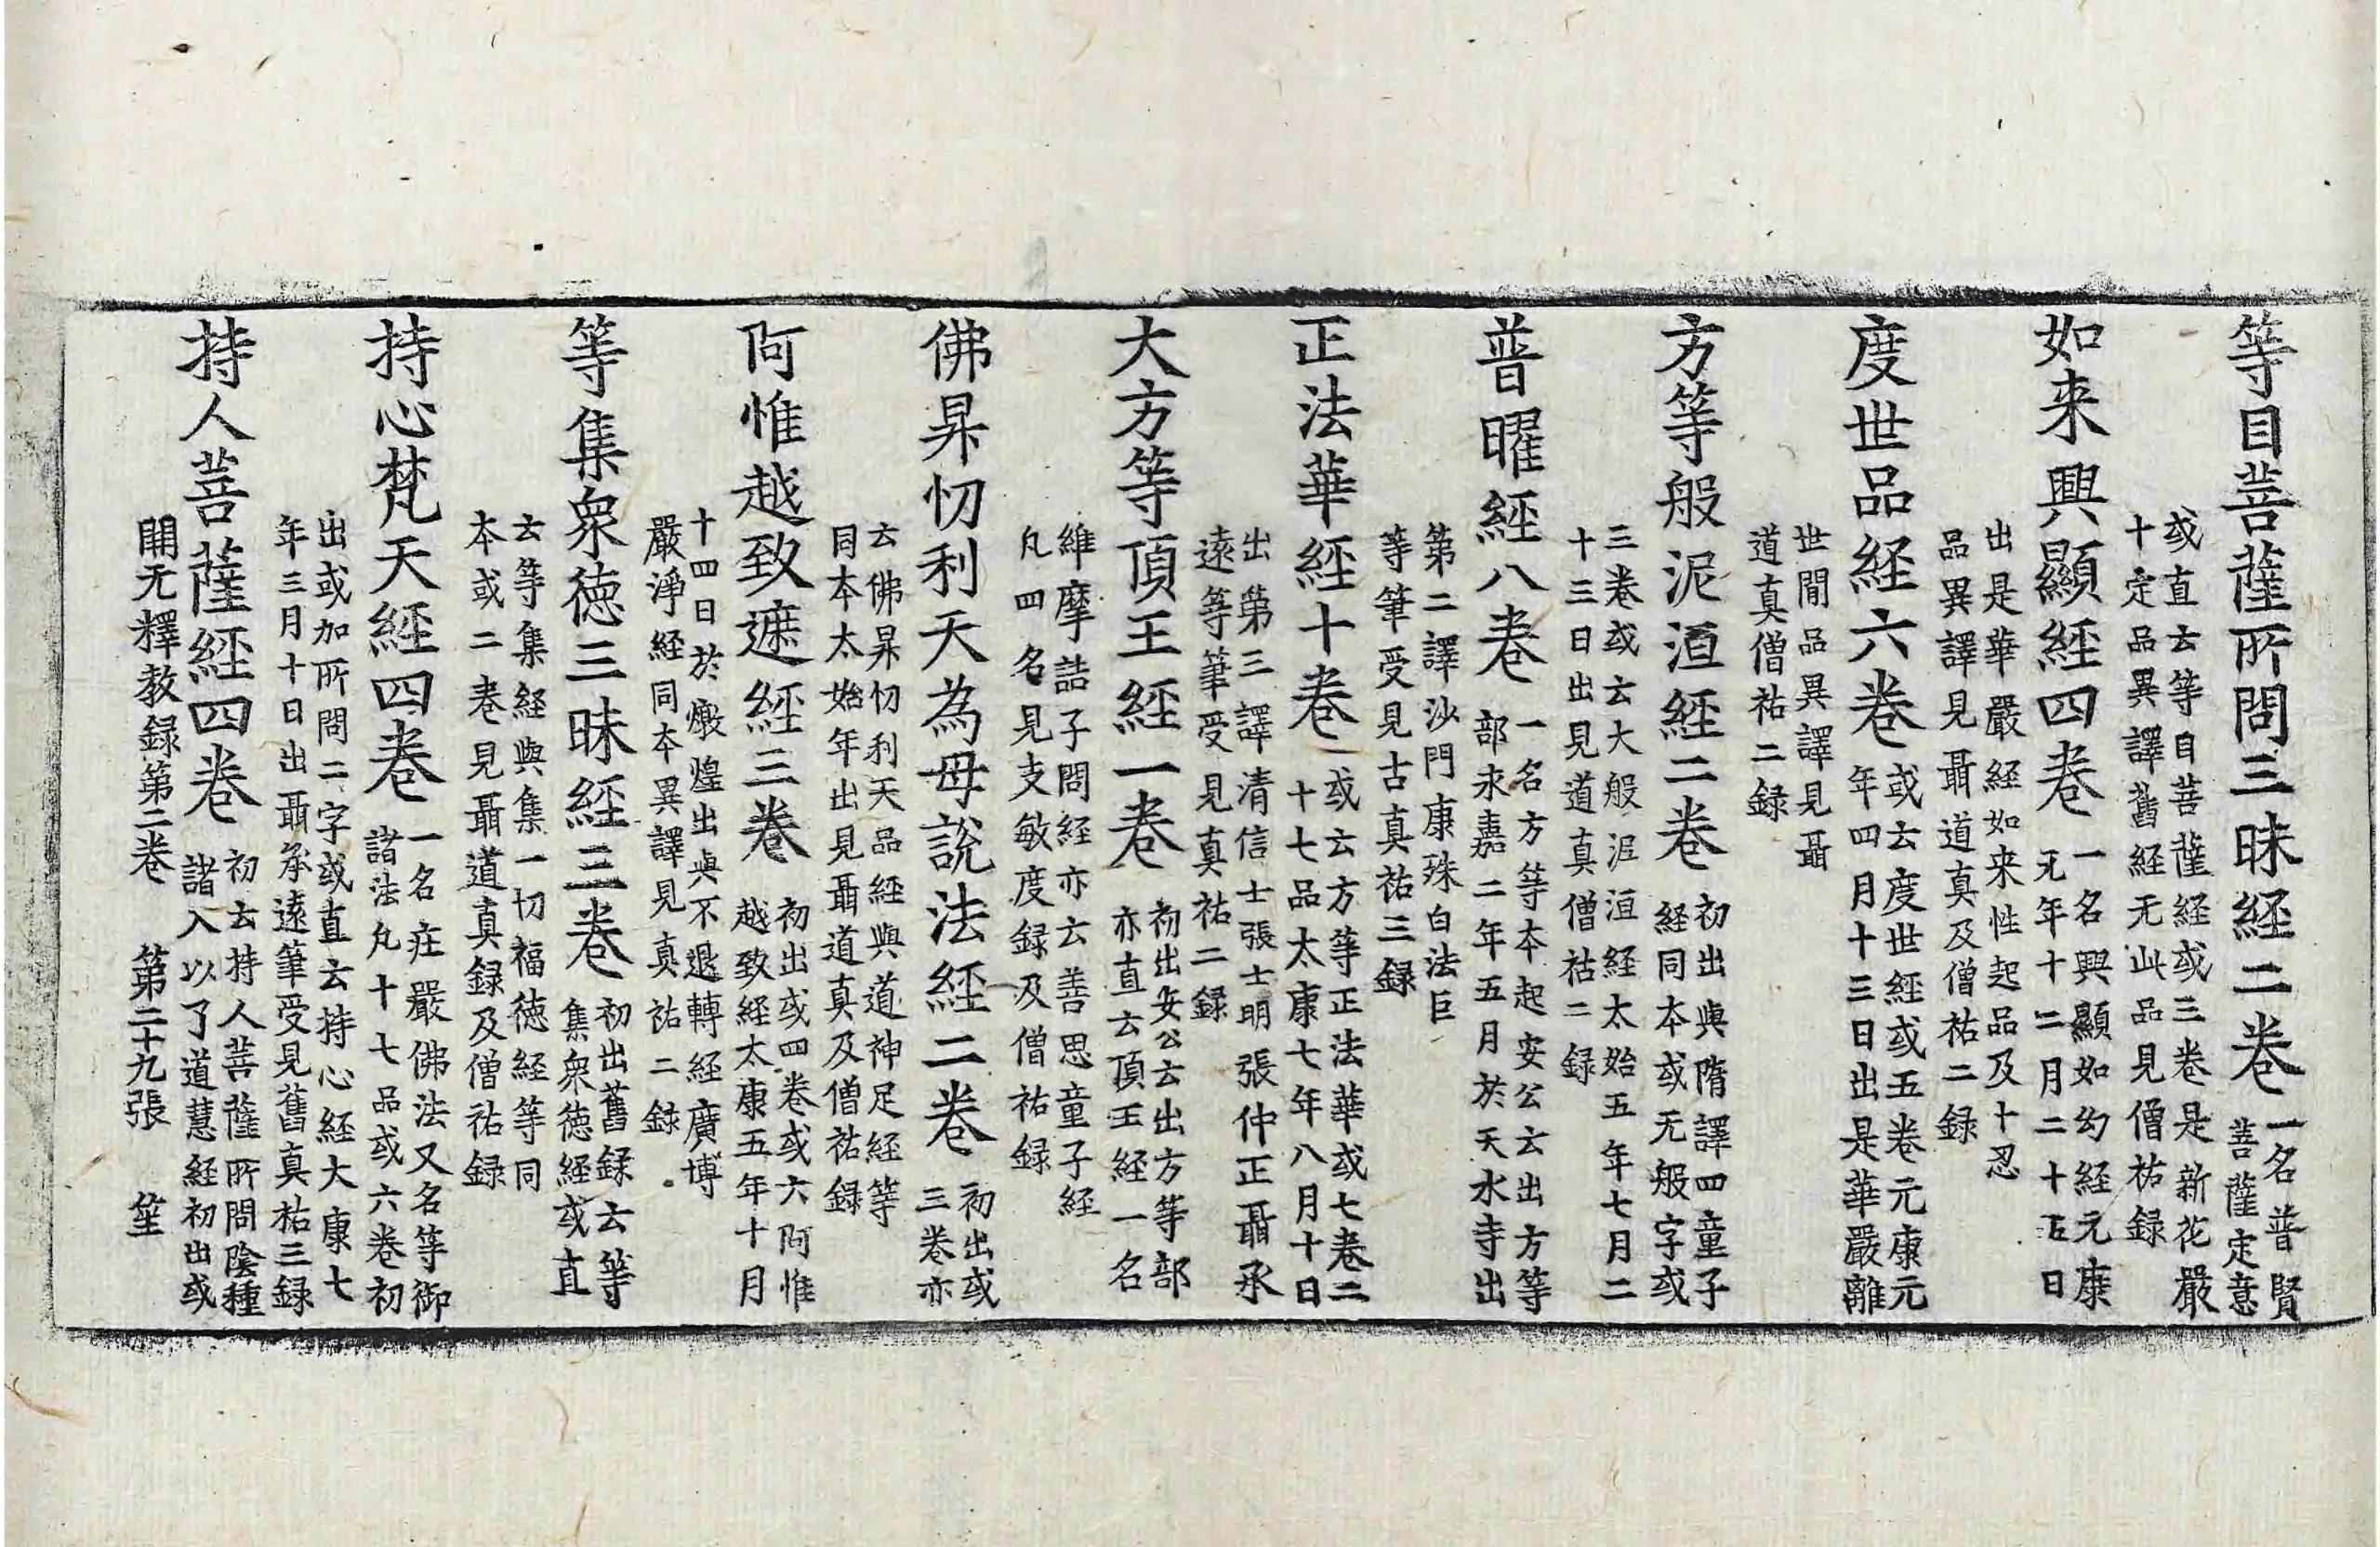 等目菩薩所問三昧経二卷一名普賢菩薩定意
或直云等目菩薩経或三卷是新花嚴十定品異譯舊経无此品見僧祐録
如来興顯経四卷一名興顯如幻経元康元年十二月二十五日
出是華嚴経如来性起品及十忍品異譯見聶道真及僧祐二録
度世品経六卷或云度世経或五卷元康元年四月十三日出是華嚴離
世間品異譯見聶道真僧祐二録
方等般泥洹経二卷初出與隋譯四童子経同本或无般字或
三卷或云大般泥洹経太始五年七月二十三日出見道真僧祐二録
普曜経八卷一名方等本起安公云出方等部永嘉二年五月於天水寺出
第二譯沙門康殊白法巨等筆受見古真祐三録
正法華経十卷或云方等正法華或七卷二十七品太康七年八月十日
出第三譯清信士張士明張仲正聶承遠等筆受見真祐二録
大方等頂王経一卷初出安公云出方等部亦直云頂王経一名
維摩詰子問経亦云善思童子経凡四名見支敏度録及僧祐録
佛昇忉利天為母說法経二卷初出或三卷亦
云佛昇忉利天品経與道神足経等同本太始年出見聶道真及僧祐録
阿惟越致遮経三卷初出或四卷或六阿惟越致経太康五年十月
十四日於燉煌出與不退轉経廣博嚴淨経同本異譯見真祐二録
等集衆徳三昧経三卷初出舊録云等集衆徳経或直
云等集経與集一切福徳経等同本或二卷見聶道真録及僧祐録
持心梵天経四卷一名莊嚴佛法又名等御諸法凡十七品或六卷初
出或加所問二字或直云持心経大康七年三月十日出聶承遠筆受見舊真祐三録
持人菩薩経四卷初云持人菩薩所問陰種諸入以了道慧経初出或
開元釋教録第二卷 第二十九張 笙